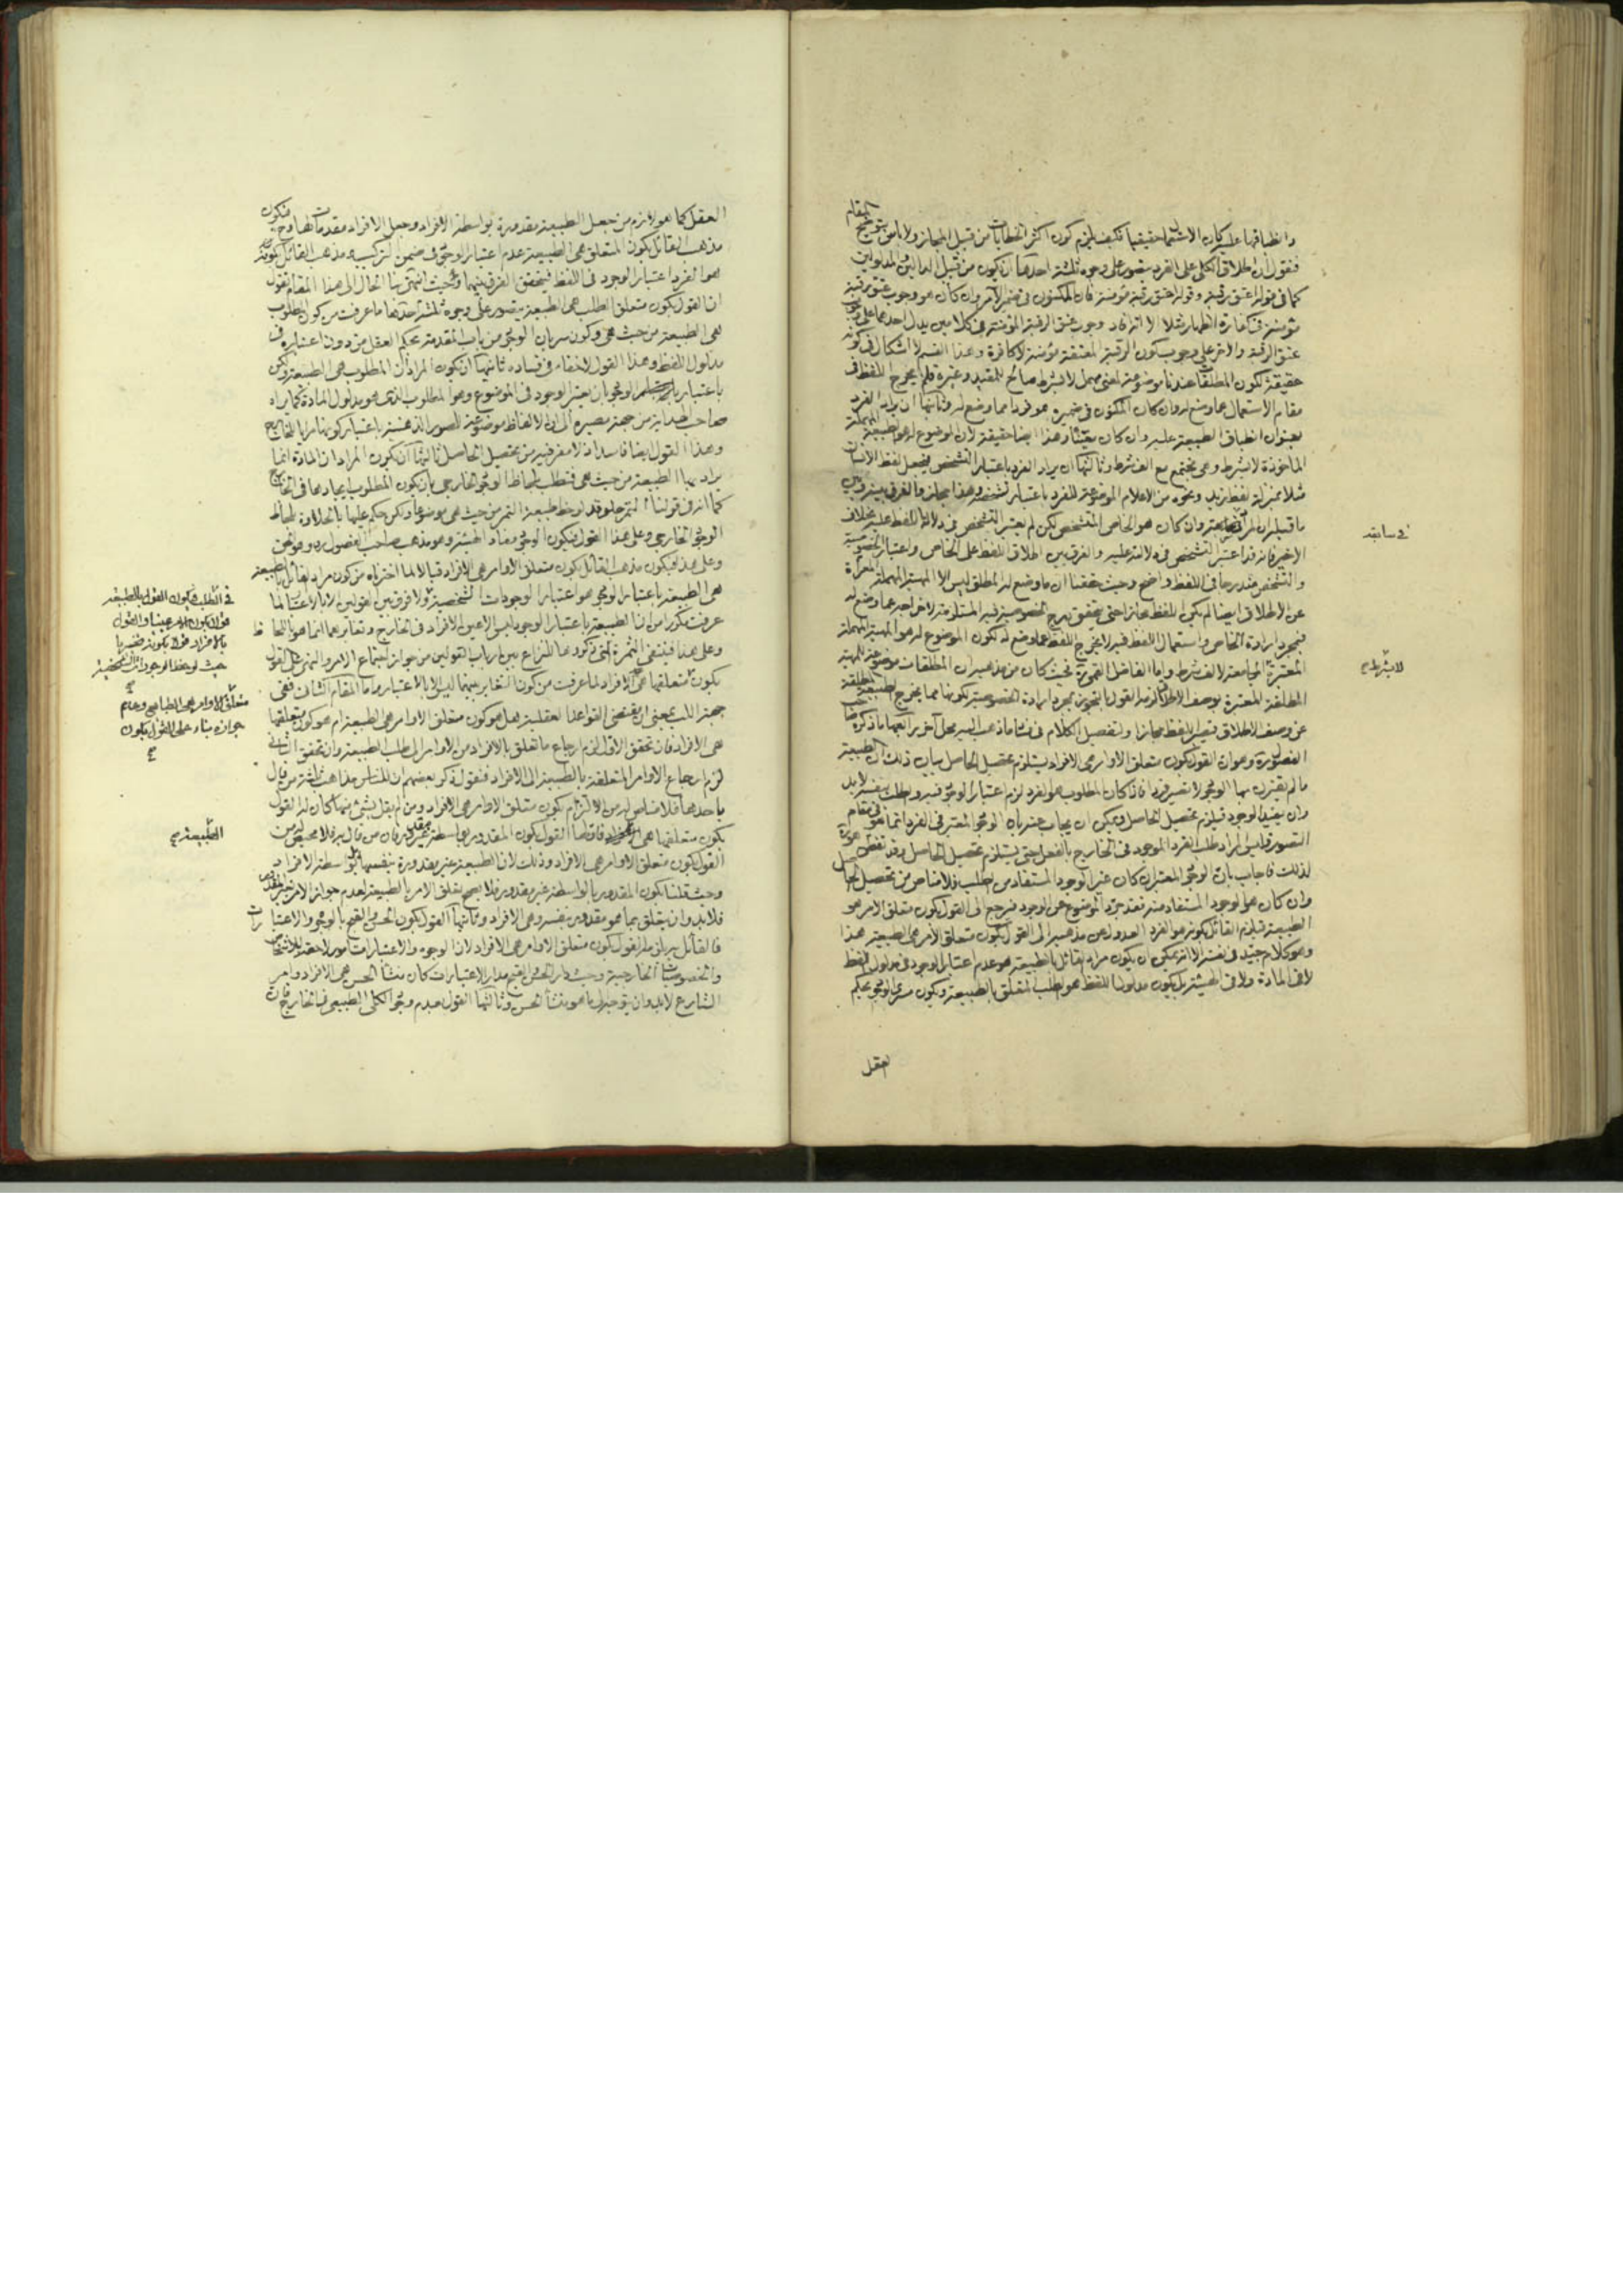 المقام
وانطباقها عليه كان الاستعمال حقيقيا فكيف يلزم كون اكثر الخطابات من قبيل المجاز ولا باس بتوضيح
فنقول ان اطلاق الكلى على الفرد يتصور على وجوه ثلثة احدها ان يكون من قبيل الدالين والمدلولين
كما فى قوله اعتق رقبة وقوله اعتق رقبة مؤمنة فان المكنون فى ضمير الآمر وان كان هو وجوب عتق رقبة
مؤمنة فى كفارة الظهار مثلا الا انه افاد وجوب عتق الرقبة المؤمنة فى كلامين يدل احدهما على وجوب
عتق الرقبة والاخر على وجوب كون الرقبة المعتقة مؤمنة لا كافرة وهذا القسم لا اشكال فى كونه
حقيقة لكون المطلقات عندنا موضوعة لمعنى مهمل لا بشرط صالح للتقييد وغيره فلم يخرج اللفظ فى
مقام الاستعمال عما وضع له وان كان المكنون فى ضميره هو فردا مما وضع له وثانيها ان يراد الفرد
بعنوان انطباق الطبيعة عليه وان كان وهذا ايضا حقيقة لان الموضوع له هو الطبيعة المهملة
الماخوذة لا بشرط وهى تجتمع مع الف شرط وثالثها ان يراد الفرد باعتبار التشخص فيجعل لفظ الانسان
مثلا بمنزلة لفظ زيد ونحوه من الاعلام الموضوعة للفرد باعتبار تشخصه وهذا مجاز والفرق بينه وبين
ما قبله ان المراد وان كان هو الخاص المتشخص لكن لم يعتبر التشخص فى دلالة اللفظ عليه بخلاف
الاخير فانه قد اعتبر التشخص فى دلالته عليه والفرق بين اطلاق اللفظ على الخاص واعتبار الخصوصية
والتشخص مندرجا فى اللفظ واضح وحيث حققنا ان ما وضع له المطلق ليس الا المهية المهملة المعراة
عن الاطلاق ايضا لم يكن اللفظ مجازا حتى يتحقق بدرج الخصوصية فيه المستلزمة لاخراجه عما وضع له
فبمجرد ارادة الخاص واستعمال اللفظ فيه لا يخرج اللفظ عما وضع له لكون الموضوع له هو المهية المهملة
المعتبرة المجامعة لالف شرط واما الفاضل القمى ره فحيث كان من مذهبه ان المطلقات موضوعة للمهية
المطلقة المعتبرة بوصف الاطلاق لزمه القول بالتجوز بمجرد ارادة الخصوصية لكونها مما يخرج الطبيعة المطلقة
عن وصف الاطلاق فيصير اللفظ مجازا وتفصيل الكلام فى فساد ما ذهب اليه محل آخر رابعها ما ذكره صاحب
الفصول ره وهو ان القول بكون متعلق الاوامر هى الافراد يستلزم تحصيل الحاصل بيان ذلك ان الطبيعة
ما لم يقترن بها الوجود لا تصير فردا فاذا كان المطلوب هو الفرد لزم اعتبار الوجود فيه والطلب بنفسه لا بد
وان يفيد الوجود فيلزم تحصيل الحاصل ويمكن ان يجاب عنه بان الوجود المعتبر فى الفرد انما هو فى مقام
التصور فليس المراد طلب الفرد الموجود فى الخارج بالفعل حتى يستلزم تحصيل الحاصل وقد تفطن هو ره
لذلك فاجاب بان الوجود المعتبر ان كان غير الوجود المستفاد من الطلب فلا مناص من تحصيل الحاصل
وان كان هو الوجود المستفاد منه فقد جرد الموضوع عن الوجود فيرجع الى القول بكون متعلق الامر هو
الطبيعة فيلزم القائل بكونه هو الفرد العدول عن مذهبه الى القول بكون متعلق الامر هى الطبيعة هذا
وهو كلام جيد فى نفسه الا انه يمكن ان يكون مراد القائل بالطبيعة هو عدم اعتبار الوجود فى مدلول اللفظ
لا فى المادة ولا فى الهيئة بل يكون مدلول اللفظ هو الطلب المتعلق بالطبيعة ويكون سريان الوجود بحكم
العقل
فى سابقه
لا بشرط صح
العقل كما هو لازم من جعل الطبيعة مقدورة بواسطة الافراد وجعل الافراد مقدمات لها وح فيكون
مذهب القائل بكون المتعلق هى الطبيعة عدم اعتبار الوجود فى ضمن التركيب ومذهب القائل بكونه
هو الفرد اعتبار الوجود فى اللفظ فيتحقق الفرق بينهما وحيث انتهى بنا الحال الى هذا المقام نقول
ان القول بكون متعلق الطلب هى الطبيعة يتصور على وجوه ثلثة احدها ما عرفت من كون المطلوب
هى الطبيعة من حيث هى وكون سريان الوجود من باب المقدمة بحكم العقل من دون اعتباره فى
مدلول اللفظ وهذا القول لا خفاء فى فساده ثانيها ان يكون المراد ان المطلوب هى الطبيعة ولكن
باعتبار الوجود بان يعتبر الوجود فى الموضوع وهو المطلوب الذى هو مدلول المادة كما يراه
صاحب الهداية من جهة مصيره الى ان الالفاظ موضوعة للصور الذهنية باعتبار كونها مرايا للخارج
وهذا القول ايضا فاسد اذ لا مفر فيه من تحصيل الحاصل ثالثها ان يكون المراد ان المادة انما
يراد بها الطبيعة من حيث هى فتطلب بلحاظ الوجود الخارجى بان يكون المطلوب ايجادها فى الخارج
كما انه فى قولنا التمر حلو قد لوحظ طبيعة التمر من حيث هى موضوعا ولكن حكم عليها بالحلاوة بلحاظ
الوجود الخارجى وعلى هذا القول فيكون الوجود مفاد الهيئة وهو مذهب صاحب الفصول ره وهو الحق
وعلى هذا فيكون مذهب القائل بكون متعلق الاوامر هى الافراد قبالا لما اخترناه من كون مراد القائل بالطبيعة
هى الطبيعة باعتبار الوجود هو اعتبار الوجودات الشخصية ولا فرق بين القولين الا بالاعتبار لما
عرفت مكررا من ان الطبيعة باعتبار الوجود ليس الا عين الافراد فى الخارج وتغايرهما انما هو باللحاظ
وعلى هذا فينتفى الثمرة التى ذكروها للنزاع بين ارباب القولين من جواز اجتماع الامر والنهى على القول
بكون متعلقها هى الافراد لما عرفت من كون التغاير بينهما ليس الا بالاعتبار واما المقام الثانى ففى
جهة اللب بمعنى ان مقتضى القواعد العقلية هل هو كون متعلق الاوامر هى الطبيعة ام هو كون متعلقها
هى الافراد فان تحقق الاول لزم ارجاع ما تعلق بالافراد من الاوامر الى طلب الطبيعة وان تحقق الثانى
لزم ارجاع الاوامر المتعلقة بالطبيعة الى الافراد فنقول ذكر بعضهم ان للناس مذاهب ثلثة من قال
باحدها فلا مناص له من الالتزام بكون متعلق الاوامر هى الافراد ومن لم يقل بشئ منها كان له القول
بكون متعلقها هى احدها القول بكون المقدور بواسطة غير مقدور فان من قال به فلا محيص له من
القول بكون متعلق الاوامر هى الافراد وذلك لان الطبيعة غير مقدورة بنفسها بل بواسطة الافراد
وحيث قلنا بكون المقدور بالواسطة غير مقدور فلا يصح تعلق الامر بالطبيعة لعدم جواز الامر بغير المقدور
فلا بد وان يتعلق بما هو مقدور بنفسه وهى الافراد وثانيها القول بكون الحسن والقبح بالوجوه والاعتبارات
فالقائل به يلزمه القول بكون متعلق الاوامر هى الافراد لان الوجوه والاعتبارات امور لاحقة للاشخاص
والخصوصيات الخارجية وحيث دار الحسن والقبح مدار الاعتبارات كان منشأ الحسن هى الافراد وامر
الشارع لا بد وان يتوجه الى ما هو منشأ الحسن وثالثها القول بعدم وجود الكلى الطبيعى فى الخارج فان
فى الطلب فيكون القول بالطبيعة
قولا بكون الامر عينيا والقول
بالافراد قولا بكونه تخييريا
حيث لوحظ الوجودات الشخصية
صح
متعلق الاوامر هى الطبايع وعدم
جوازه بناء على القول بكون
صح
الطبيعة صح